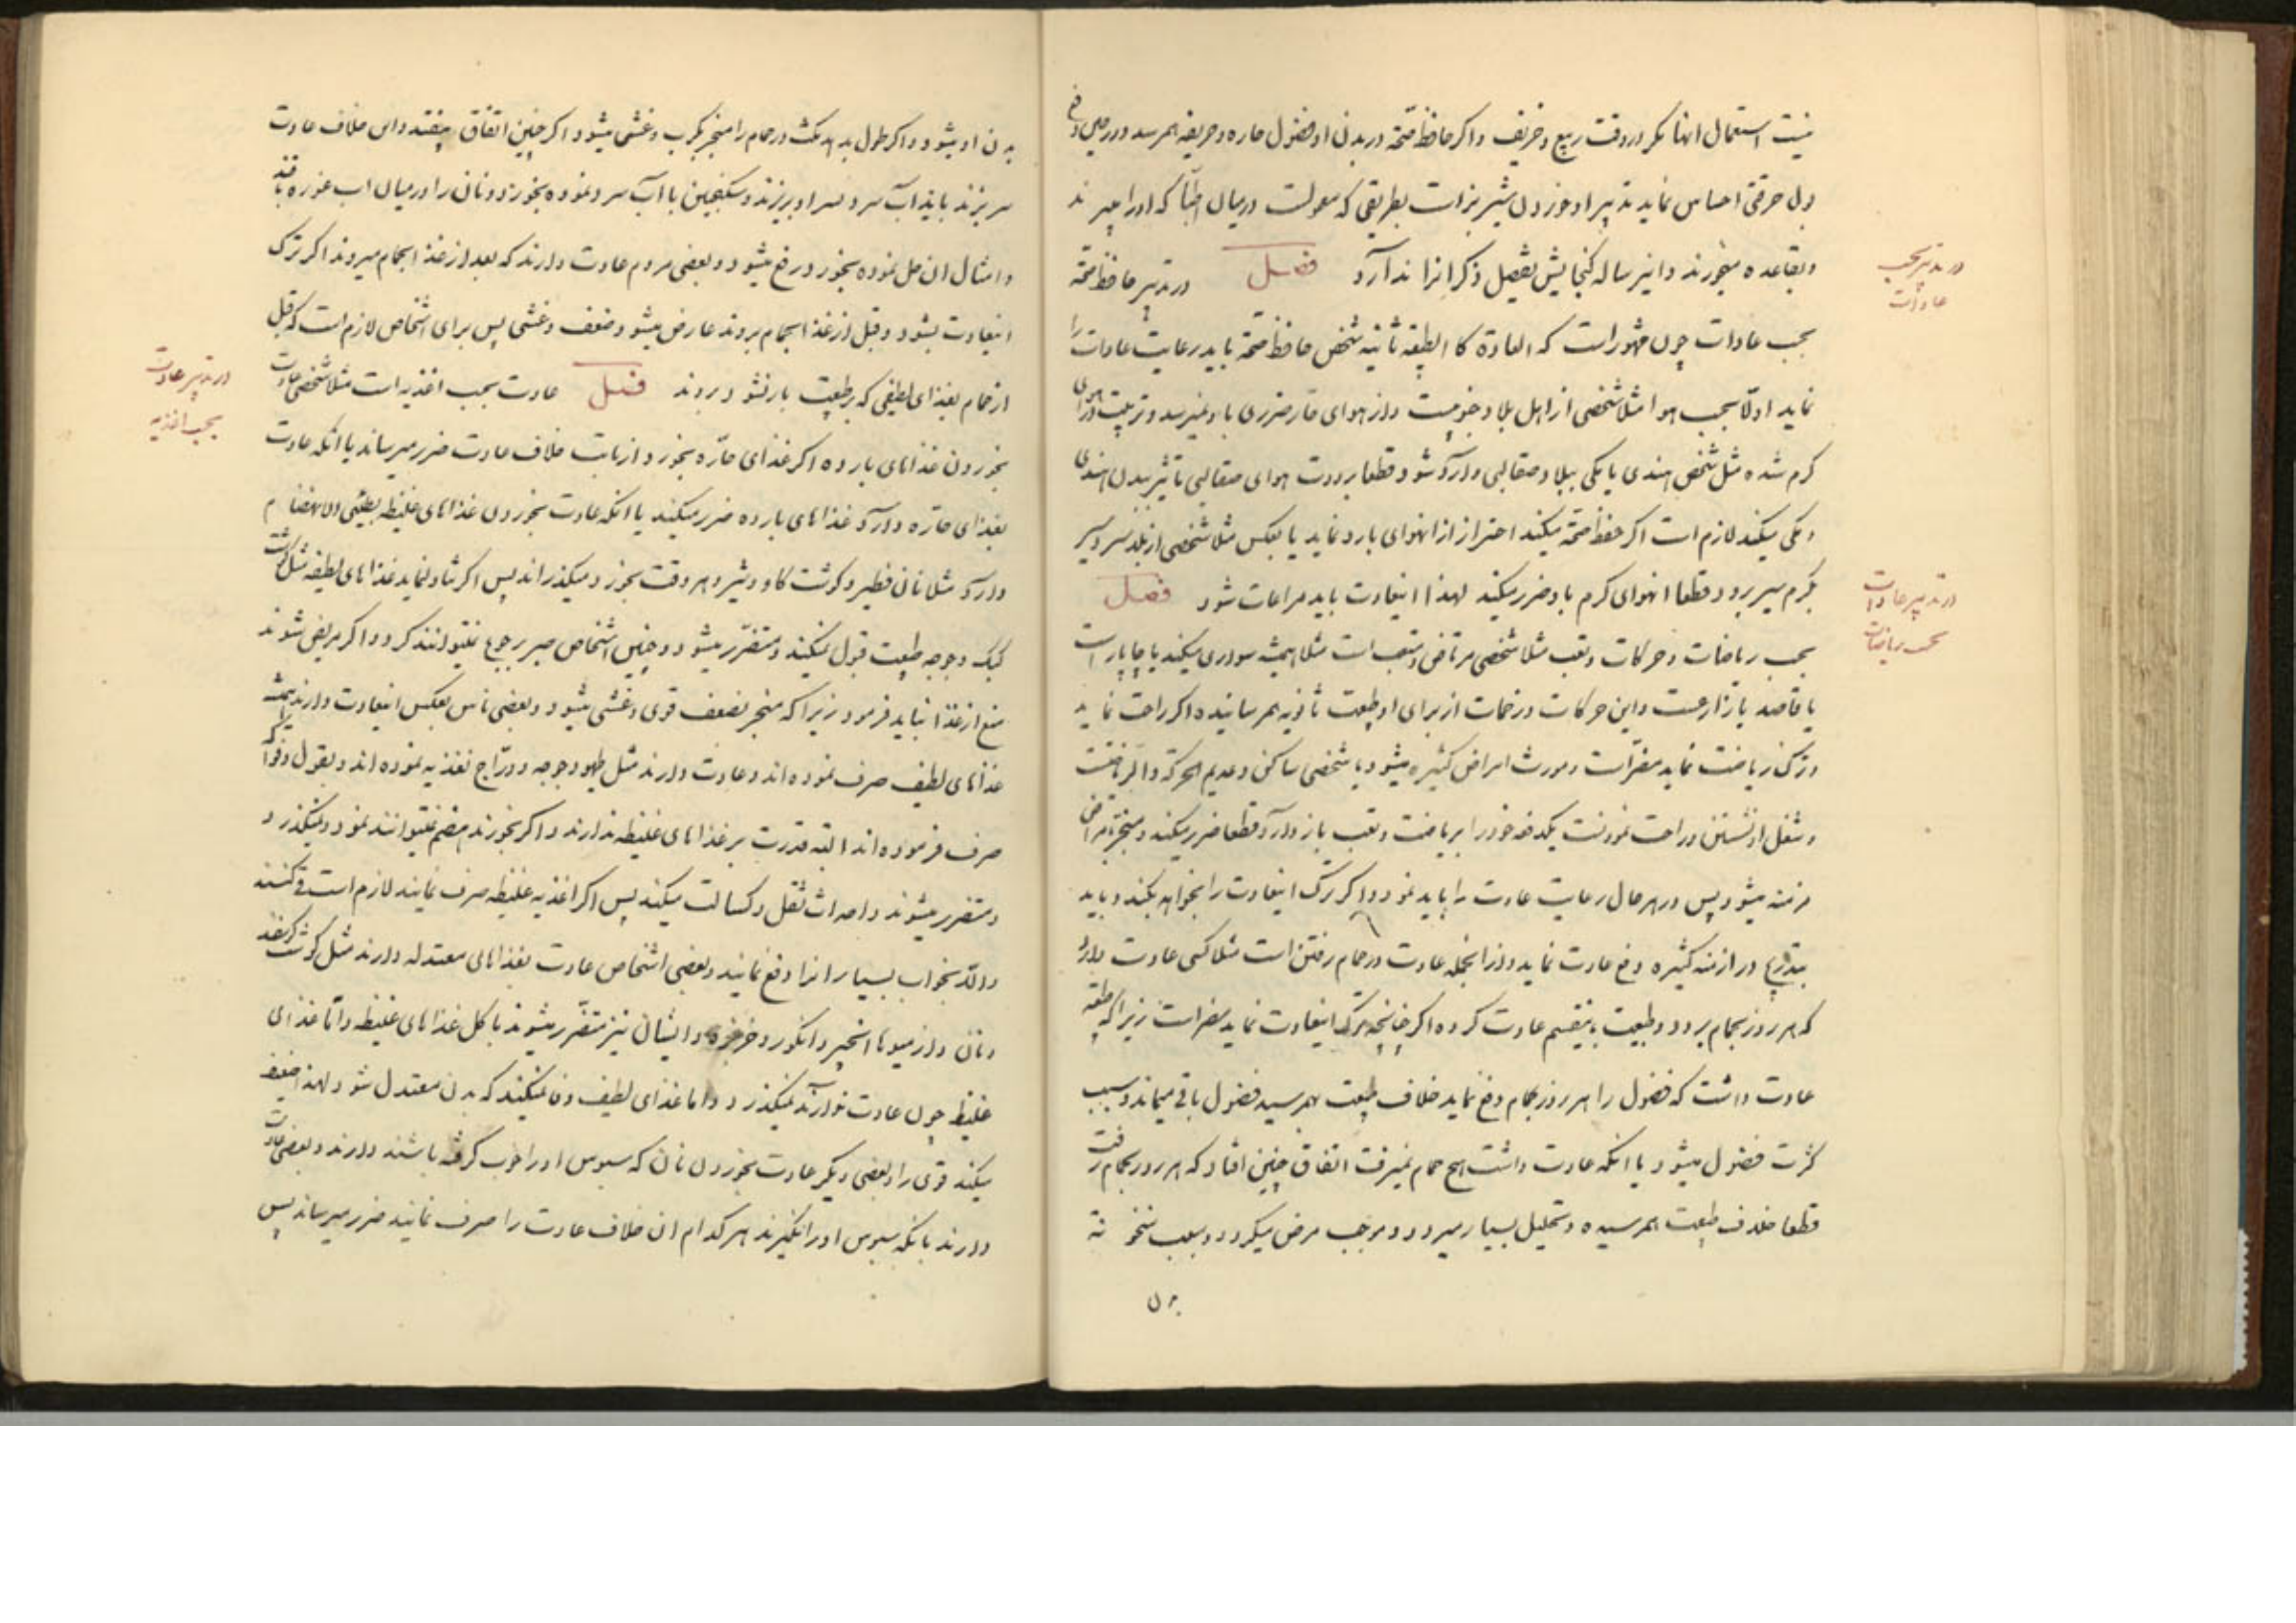 نیست استعمال انها مکر در وقت ربیع و خریف و اکر حافظ صحّة در بدن او فضول حاره و حریفه بهمرسد و در حین دفع
بول حرقتی احساس نماید تدبیر او خوردن شیر بز است بطریقی که معمولست در میان اطبّا که او را میبرند
وبقاعده میخورند و اینرساله کنجایش تفصیل ذکر انرا ندارد فصل در تدبیر حافظ صحّة
در تدبیر بحسب
عادات
بحسب عادات چون مشهور است که العادة کا الطبیعه ثانیه شخص حافظ صحّة باید رعایت عادات را
نماید اولّا بحسب هوا مثلا شخصی از اهل بلاد جنوبیست و از هوای حار ضرری باو نمیرسد و تربیت در هوای
کرم شده مثل شخص هندی یا مکی ببلاد صقالبی وارد شود قطعا برودت هوای صقالبی تاثیر ببدن هندی
و مکی میکند لازم است اکر حفظ صحّة میکند احتراز از انهوای بارد نماید یا بعکس مثلا شخصی از بلد سردسیر
بکرم سیر برود قطعا انهوای کرم باو ضرر میکند لهذا اینعادت باید مراعات شود فصل
در تدبیر عادات
بحسب ریاضات
بحسب ریاضات و حرکات و تعب مثلا شخصی مرتاض و متعب است مثلا همیشه سواری میکند یا چاپار است
یا قاصد یا زارعست و این حرکات و زحمات از برای او طبیعت ثانویه بهمرسانیده اکر راحت نماید
و ترک ریاضت نماید مضرّاست و مورث امراض کثیره میشود یا شخصی ساکن و عدیم الحرکة والریاضت
و شغل او نشستن و راحت نمودنست یکدفعه خود را بریاضت و تعب باز دارد قطعا ضرر میکند و منجر بامراض
مزمنه میشود پس در هر حال رعایت عادت را باید نمود و اکر ترک اینعادت را بخواهد بکند باید
بتدریج در ازمنه کثیره دفع عادت نماید و از انجمله عادت در حمام رفتن است مثلا کسی عادت دارد
که هر روز بحمام برود و طبیعت باینقسم عادت کرده اکر چنانچه ترک اینعادت نماید مضراست زیرا که طبیعة
عادت داشت که فضول را هر روز بحمام دفع نماید خلاف طبیعت بهمرسید فضول باقی میماند و سبب
کثرت فضول میشود یا انکه عادت داشت هیچ حمام نمیرفت اتفاق چنین افتاد که هر روز بحمام رفت
قطعا خلاف طبیعت بهمرسیده و تحلیل بسیار میرود و موجب مرض میکردد و سبب سخونة
بدن
بدن او میشود و اکر طول بدهد مکث در حمام را منجر بکرب و غشی میشود اکر چنین اتفاق بیفتد و این خلاف عادت
سر بزند باید اب سرد بسر او بریزند و سکنجبین با اب سرد نموده بخورد و نان را در میان اب غوره یافند
و امثال ان حل نموده بخورد رفع میشود و بعضی مردم عادت دارند که بعد از غذا بحمام میروند اکر ترک
اینعادت بشود و قبل از غذا بحمام بروند عارض میشود ضعف و غشی پس برای اشخاص لازم است که قبل
از حمام بغذای لطیفی که بر طبیعت بار نشود بروند فصل عادت بحسب اغذیه است مثلا شخصی عادت
در تدبیر عادت
بحسب اغذیه
بخوردن غذاهای بارده اکر غذای حارّه بخورد از بابت خلاف عادت ضرر میرساند یا انکه عادت
بغذای حارّه دارد غذاهای بارده ضرر میکند یا انکه عادت بخوردن غذاهای غلیظه بطیئی الانهضام
دارد مثلا نان فطیر و کوشت کاو و شیر و هر وقت بخورد میکذراند پس اکر شاد نماید غذاهای لطیفه مثل کوشت
کبک و جوجه طبیعت قبول نمیکند و متضرّر میشود و چنین اشخاص صبر بر جوع نمیتوانند کرد و اکر مریض شوند
منع از غذا نباید فرمود زیرا که منجر بضعف قوی و غشی میشود و بعضی ناس بعکس اینعادت دارند همیشه
غذاهای لطیف صرف نموده اند و عادت دارند مثل طیهو و جوجه و درّاج تغذیه نموده اند و بقول و فواکه
صرف فرموده اند البته قدرت بر غذاهای غلیظه ندارند و اکر بخورند هضم نمیتوانند نمود و نمیکذرد
و متضرر میشوند و احداث ثقل و کسالت میکند پس اکر اغذیه غلیظه صرف نمایند لازم است قی کنند
والّا بخواب بسیار انرا دفع نمایند و بعضی اشخاص عادت بغذاهای معتدله دارند مثل کوشت کوسفند
و نان و از میوها انجیر و انکور و خربزه و ایشان نیز متضّرر میشوند باکل غذاهای غلیظه و امّا غذای
غلیظ چون عادت ندارند نمیکذرد و اما غذای لطیف وفا نمیکند که بدن معتدل شود لهذا ضعف
میکند قوی را و بعضی دیکر عادت بخوردن نان که سبوس او را خوب کرفته باشند دارند و بعضی عادت
دارند بانکه سبوس او را نکیرند هر کدام ان خلاف عادت را صرف نمایند ضرر میرساند پس